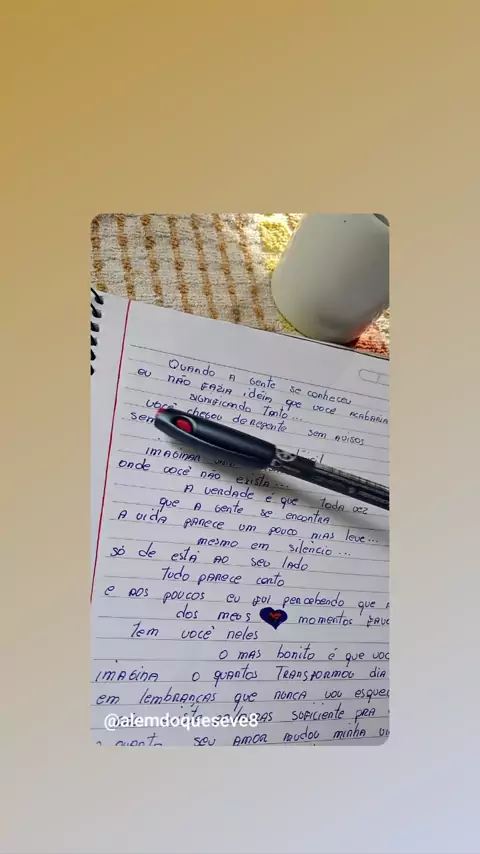 Quando a gente se conheceu
eu não fazia idéia que você acabaria
significando tanto...
você chegou de repente sem avisos
sem
imaginar
onde você não exista...
A verdade é que toda vez
que a gente se encontra
a vida parece um pouco mas leve...
mesmo em silêncio...
só de está ao seu lado
tudo parece certo
e aos poucos eu fui percebendo que
dos meus momentos
tem você neles
o mas bonito é que
imagina o quantos transformou dia
em lembranças que nunca vou
suficiente pra
@alemdoqueseve8
seu amor mudou minha